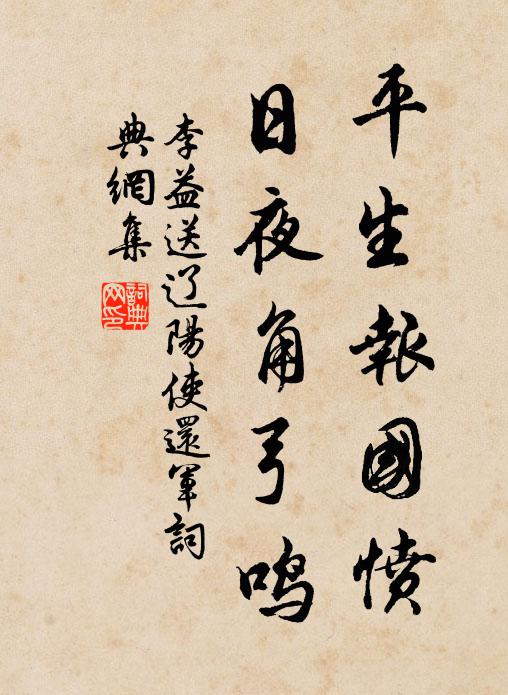 平生報國憤
日夜角弓鸣
李益送辽陽使還軍詞
典網集
詞典網印